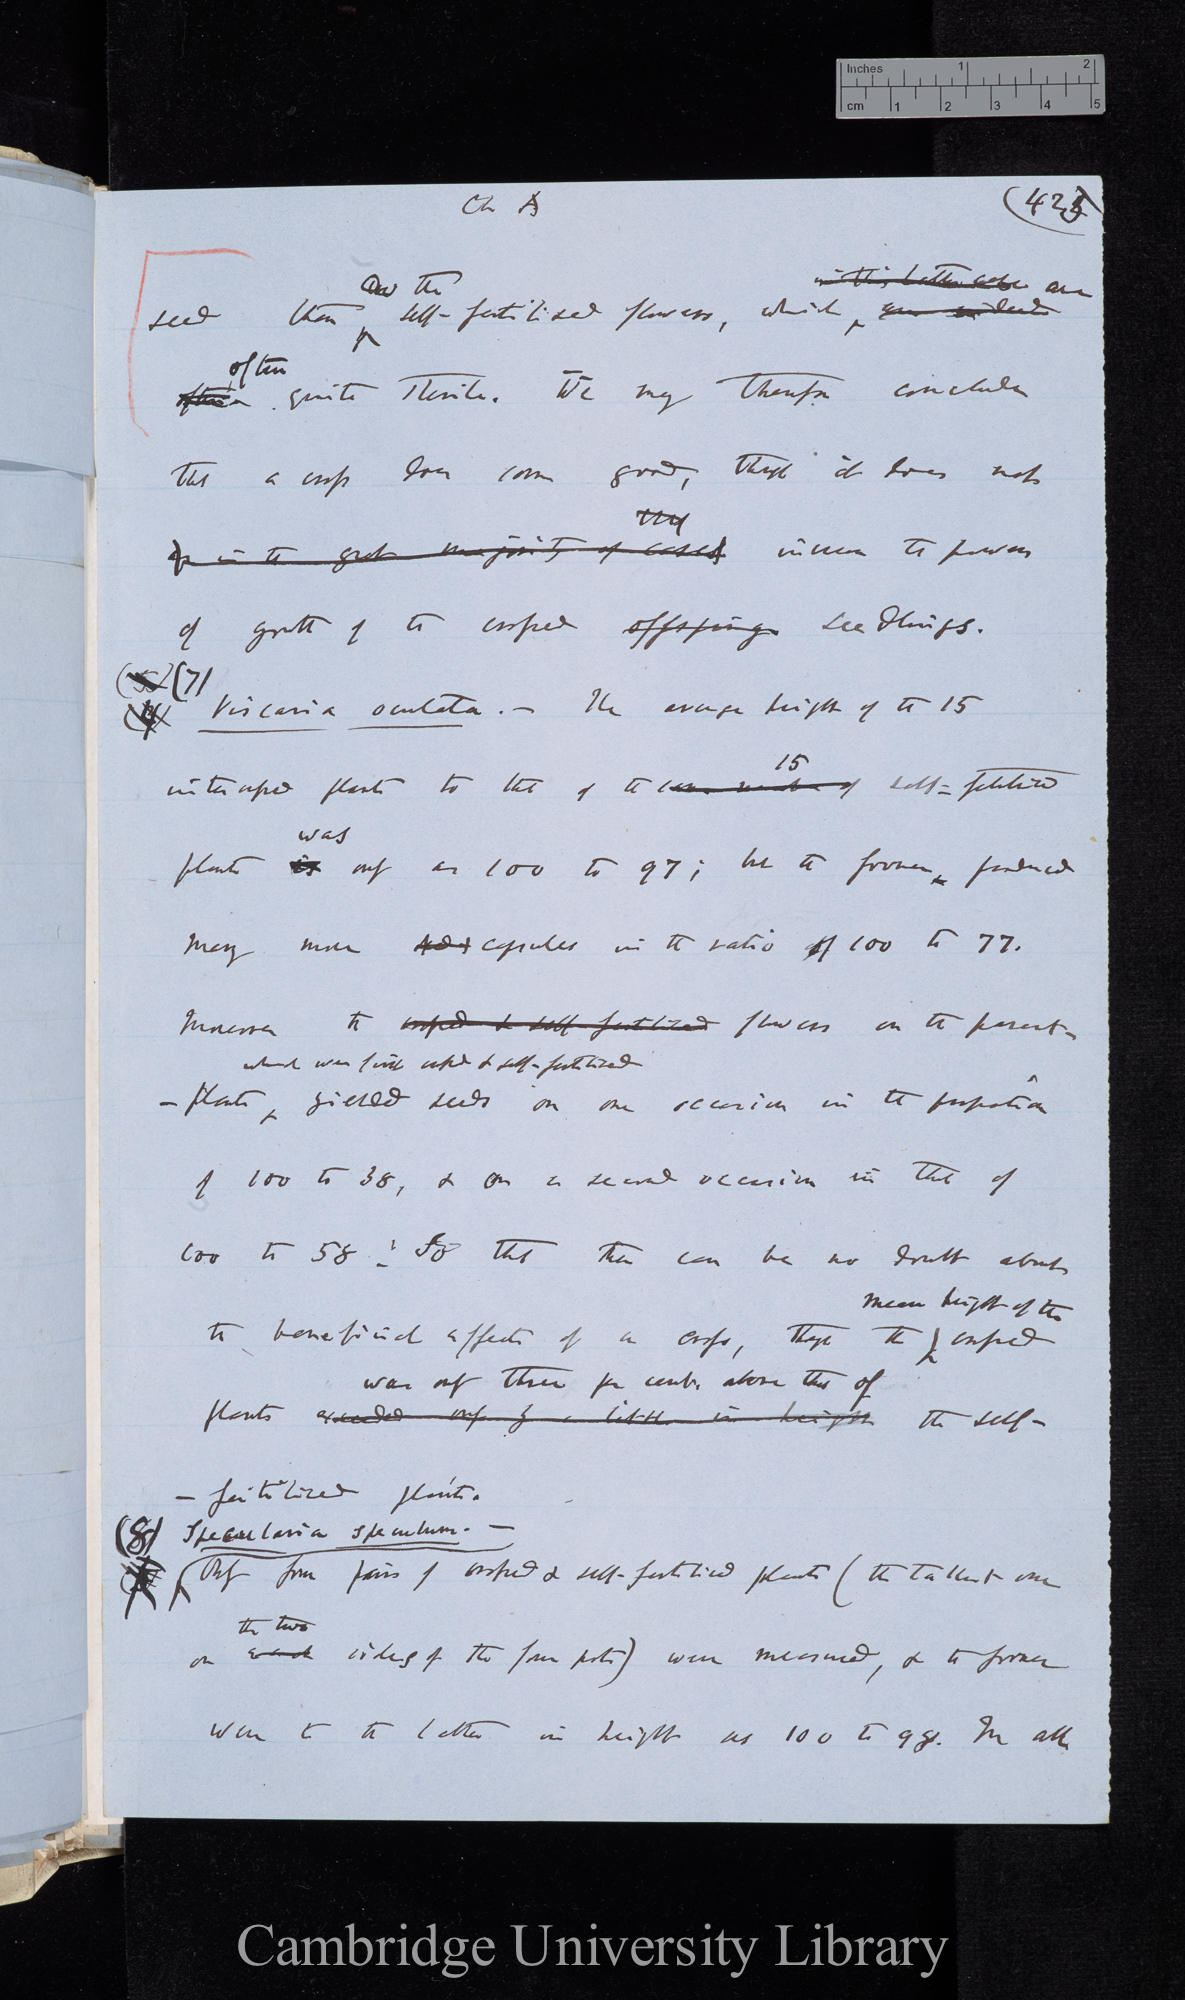 Inches 1 2
cm 1 2 3 4 5
Ch
(42
in this latter case are
do the
seed than self-fertilised flowers, which
often
quite sterile. We may therefore conclude
that a cross does some good, though it does not
the
in the great majority of cases increase the powers
of growth of the crossed offsprings seedlings.
(7)
Viscaria oculata. — The average height of the 15
15
intercrossed plants to that of the same number of self-fertilised
was
plants is only as 100 to 97; but the former produced
many more capsules in the ratio of 100 to 77.
Moreover the crossed & self-fertilised flowers on the parent-
which were first crossed & self-fertilised
-plants yielded seeds on one occasion in the proportion
of 100 to 38, & on a second occasion in that of
100 to 58: So that there can be no doubt about
mean height of the
the beneficial effects of a cross, though the crossed
was only three per cent. above that of
plants exceeded only by a little in height the self-
-fertilised plants.
(8) Specularia speculum. —
Only four pairs of crossed & self-fertilised plants (the tallest one
the two
on each sides of the four pots) were measured, & the former
were to the latter in height as 100 to 98. In all
Cambridge University Library